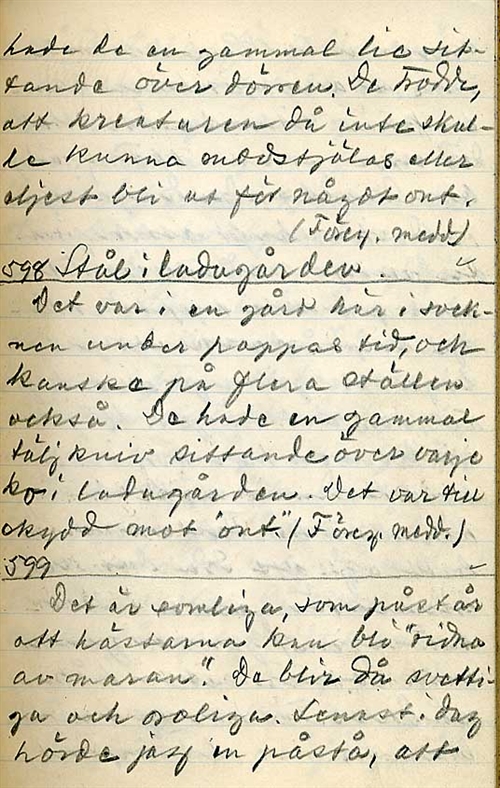 hade de en gammal lie sit-
tande över dörren. De trodde,
att kreaturen då inte skul-
le kunna mödstjälas eller
eljest bli ut för något ont.
(Föreg. medd.)
598 Stål i ladugården.
Det var i en gård här i sock-
nen under pappas tid, och
kanske på flera ställen
också. De hade en gammal
täljkniv sittande över varje
ko i ladugården. Det var till
skydd mot "ont". (Föreg. medd.)
599
Det är somliga, som påstår
att hästarna kan bli "ridna
av maran". De blir då svetti-
ga och oroliga. Senast i dag
hörde jag en påstå, att